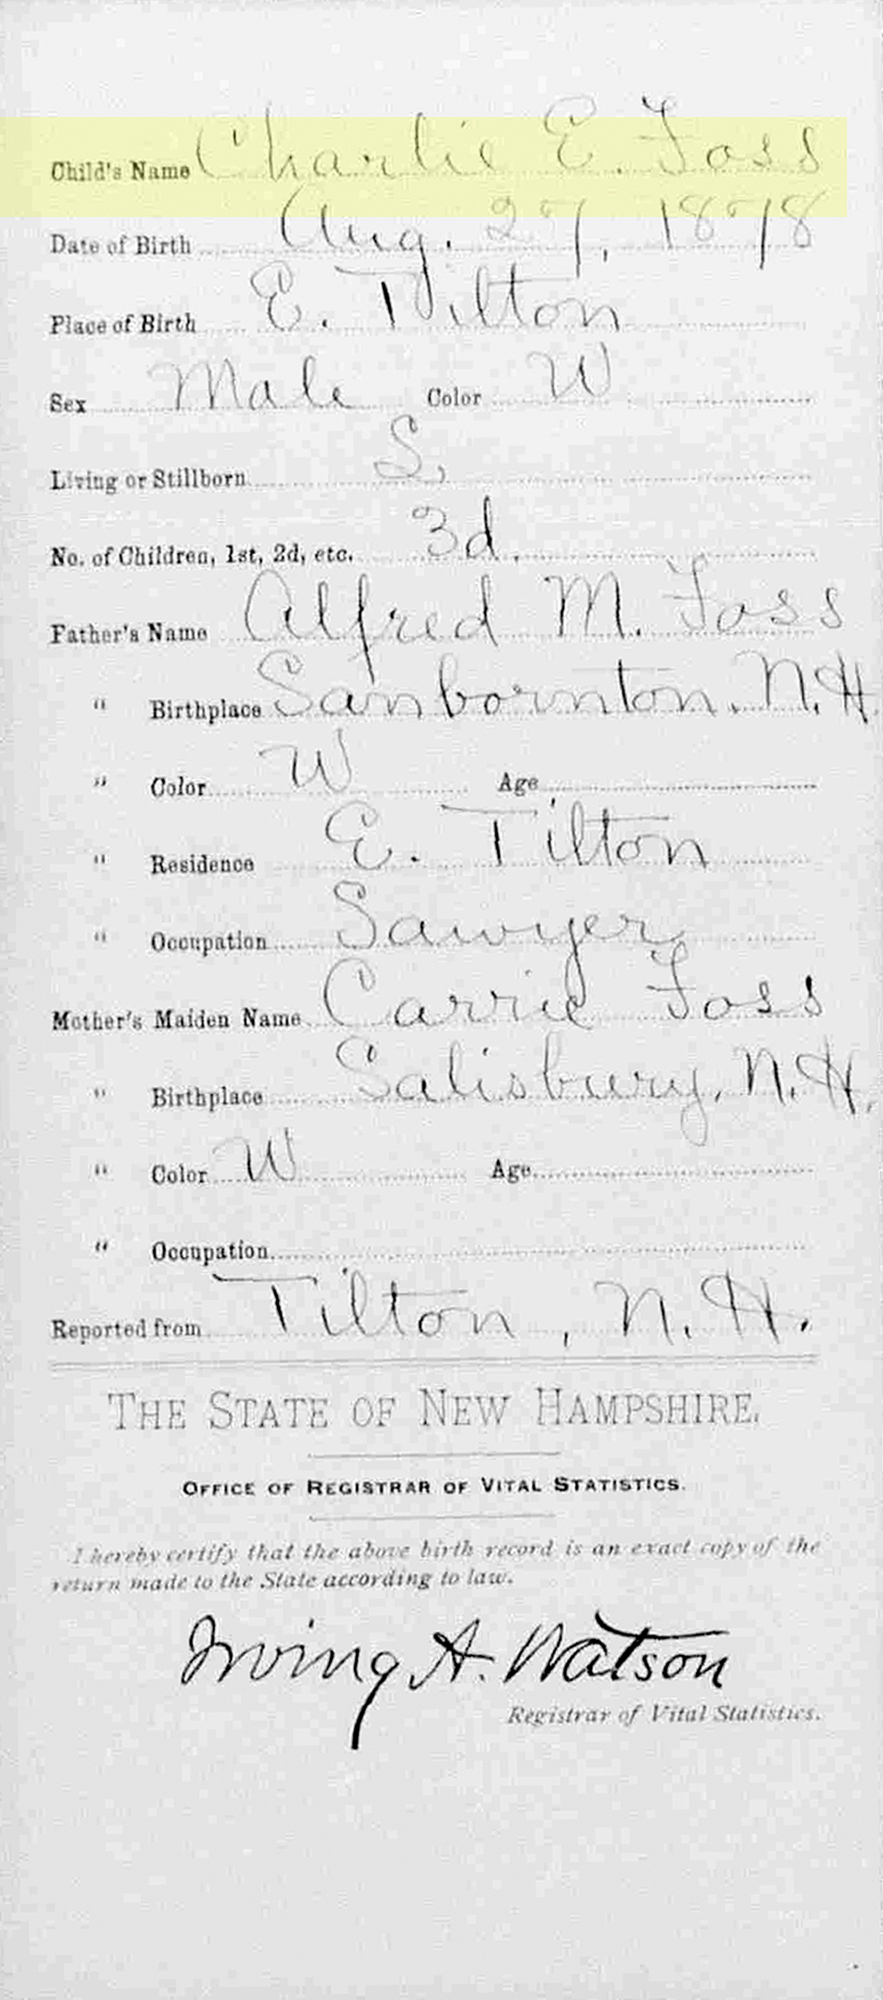 Child's Name Charlie E. Foss
Date of Birth Aug. 27, 1878
Place of Birth E. Tilton
Sex Male Color W
Living or Stillborn S.
No. of Children, 1st, 2d, etc. 3d.
Father's Name Alfred M. Foss
" Birthplace Sanbornton. N.H.
" Color W Age
" Residence E. Tilton
" Occupation Sawyer
Mother's Maiden Name Carrie Foss
" Birthplace Salisbury, N.H.
" Color W Age
" Occupation
Reported from Tilton, N.H.
THE STATE OF NEW HAMPSHIRE.
OFFICE OF REGISTRAR OF VITAL STATISTICS.
I hereby certify that the above birth record is an exact copy of the
return made to the State according to law.
Irving A. Watson
Registrar of Vital Statistics.